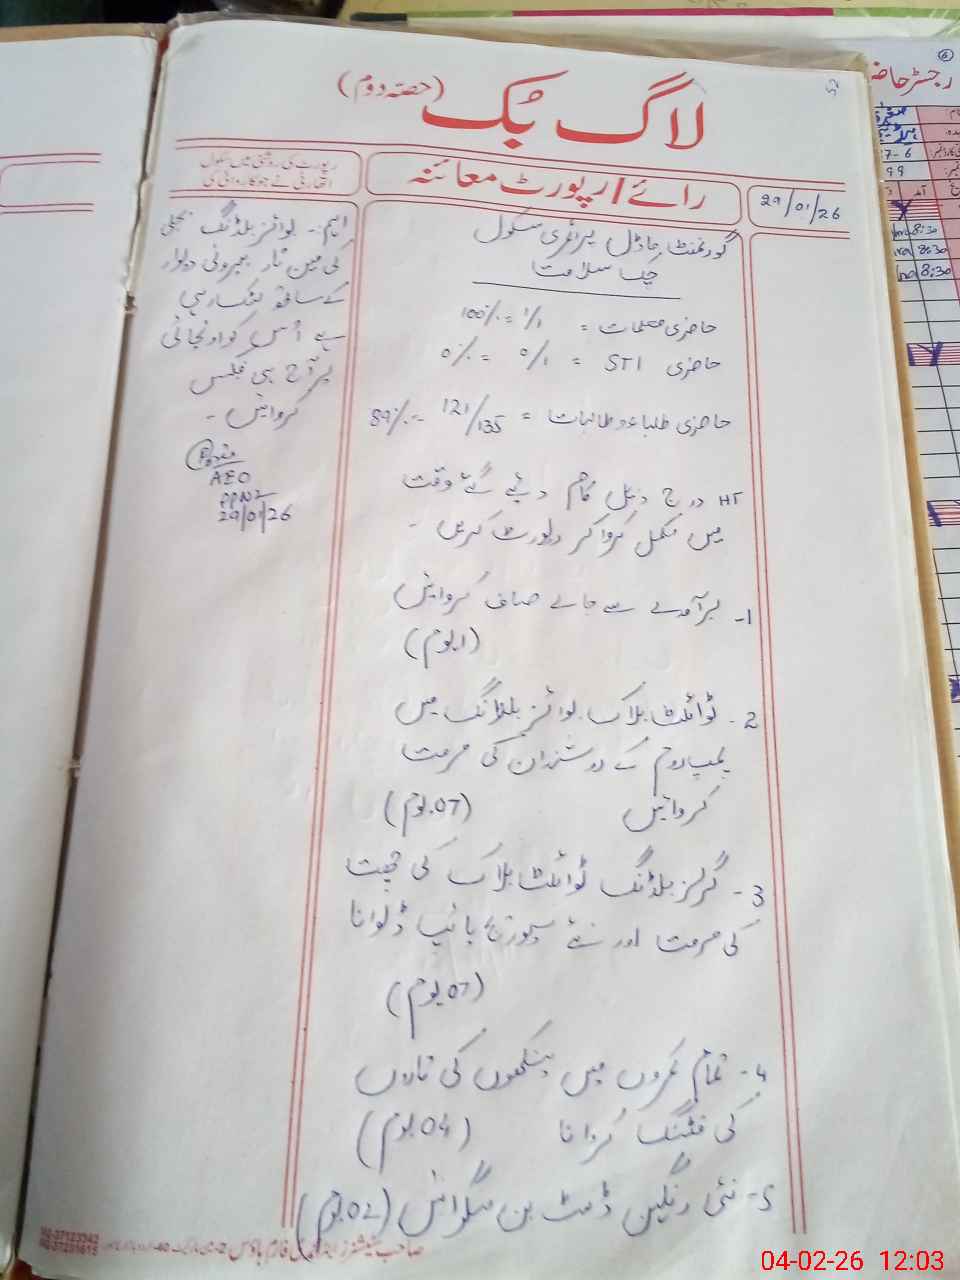 لاگ بک (حصہ دوم)
رائے/رپورٹ معائنہ
رپورٹ کی روشنی میں سکول
اتھارٹی نے جو کارروائی کی
29/01/26
گورنمنٹ ماڈل پرائمری سکول
چک سلامت
حاضری معلمات = 1/1 = 100%
حاضری STI = 0/1 = 0%
حاضری طلباء و طالبات = 121/135 = 89%
HT درج ذیل کام دیے گئے وقت
میں مکمل کروا کر رپورٹ کریں۔
1- برآمدے سے جالے صاف کروائیں
(1 یوم)
2- ٹوائلٹ بلاک بوائز بلڈنگ میں
پمپ روم کے روشندان کی مرمت
کروائیں (07 یوم)
3- گرلز بلڈنگ ٹوائلٹ بلاک کی چھت
کی مرمت اور نئے سیوریج پائپ ڈلوانا
(07 یوم)
4- تمام کمروں میں پنکھوں کی تاروں
کی فٹنگ کروانا (04 یوم)
5- نئی رنگین ڈسٹ بن منگوائیں (02 یوم)
اہم:- بوائز بلڈنگ بجلی
کی مین تار بیرونی دیوار
کے ساتھ لٹک رہی
ہے اُس کو اونچائی
پر آج ہی فکس
کروائیں۔
AEO
29/01/26
رجسٹر حاضری
6
8:30
8:30
8:30
04-02-26 12:03